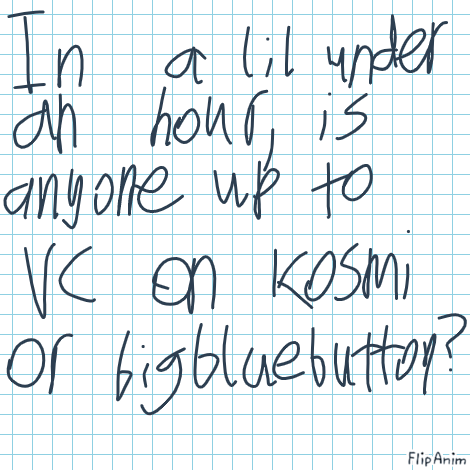 In a lil under
an hour, is
anyone up to
VC on kosmi
or bigbluebutton?
FlipAnim